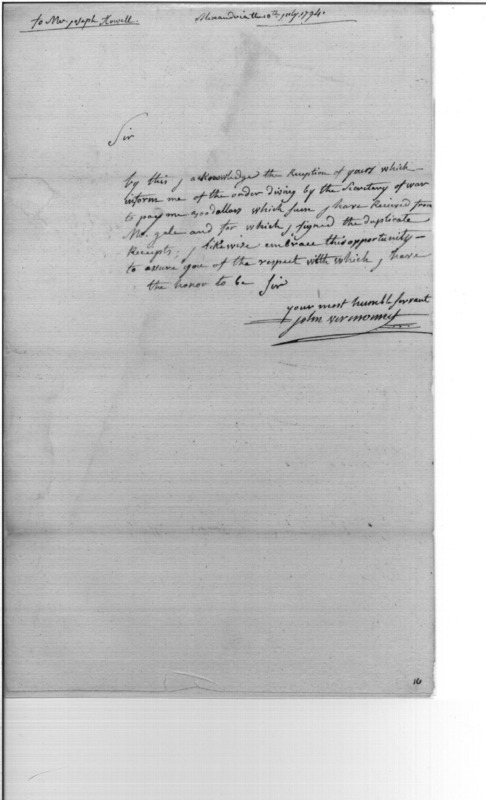 To Mr. joseph Howell.
Alexandria the 18th july. 1794.
Sir
by this j acknowledge the Reception of yours which
inform me of the order by the Secretary of war
to pay me dollars which sum j have Received from
Mr. yale and for which j signed the duplicate
Receipts; j likewise embrace this opportunity
to assure you of the respect with which j have
the honor to be Sir
your most humble servant
john vermonnet
16